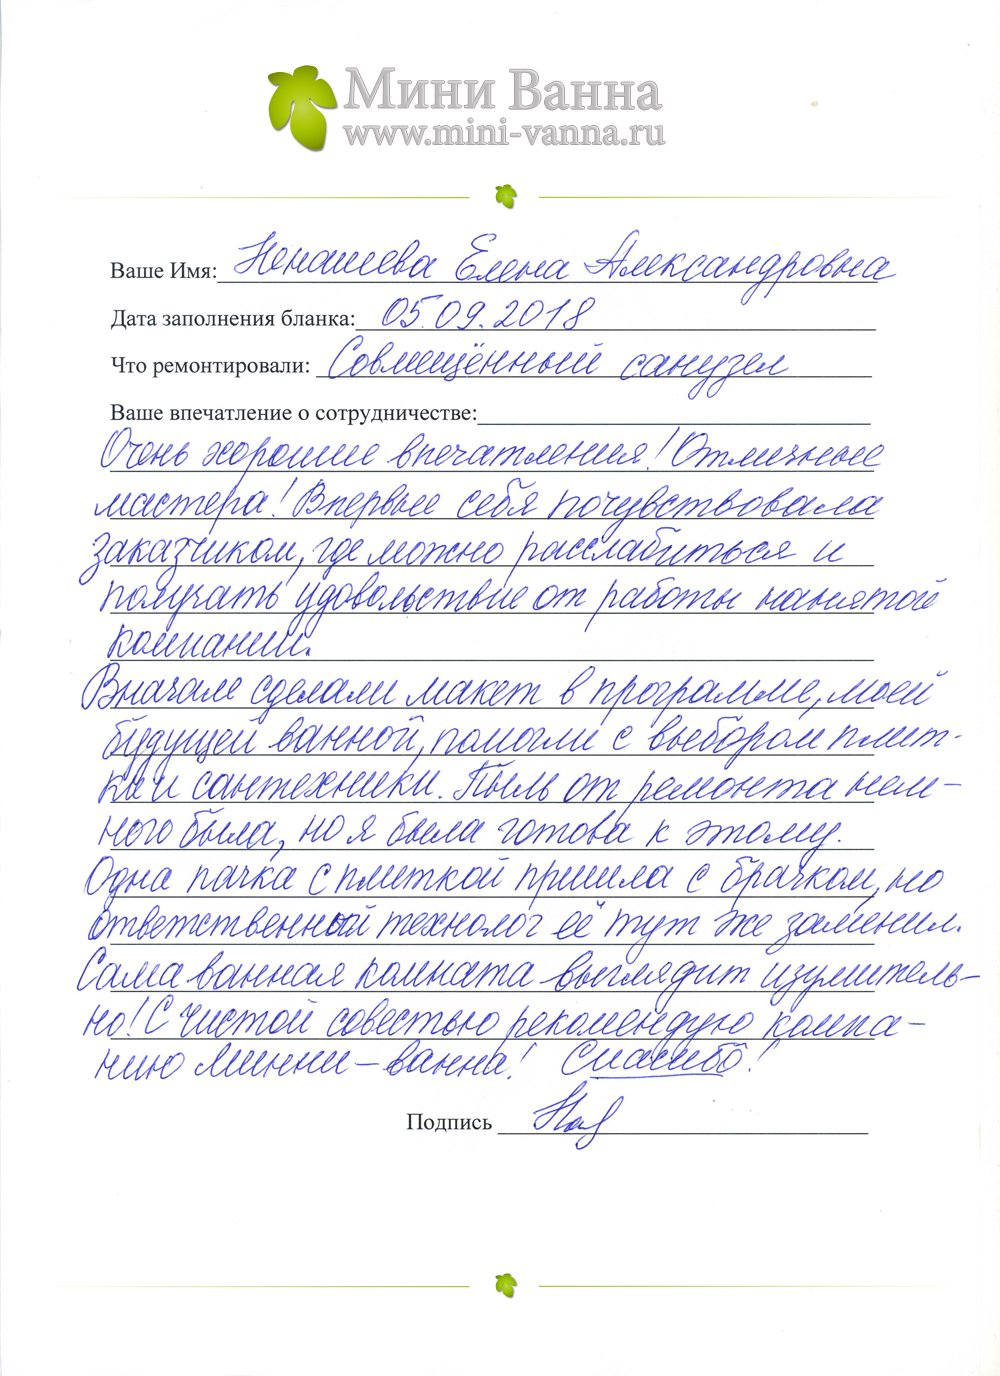 Мини Ванна
www.mini-vanna.ru
Ваше Имя: Ненашева Елена Александровна
Дата заполнения бланка: 05.09.2018
Что ремонтировали: Совмещённый санузел
Ваше впечатление о сотрудничестве:
Очень хорошие впечатления! Отличные
мастера! Впервые себя почувствовала
заказчиком, где можно расслабиться и
получать удовольствие от работы нанятой
компании.
Вначале сделали макет в программе, моей
будущей ванной, помогли с выбором плит-
ки и сантехники. Пыль от ремонта нем-
ного была, но я была готова к этому.
Одна пачка с плиткой пришла с брачком, но
ответственный технолог её тут же заменил.
Сама ванная комната выглядит изумитель-
но! С чистой совестью рекомендую компа-
нию Минни-ванна! Спасибо!
Подпись